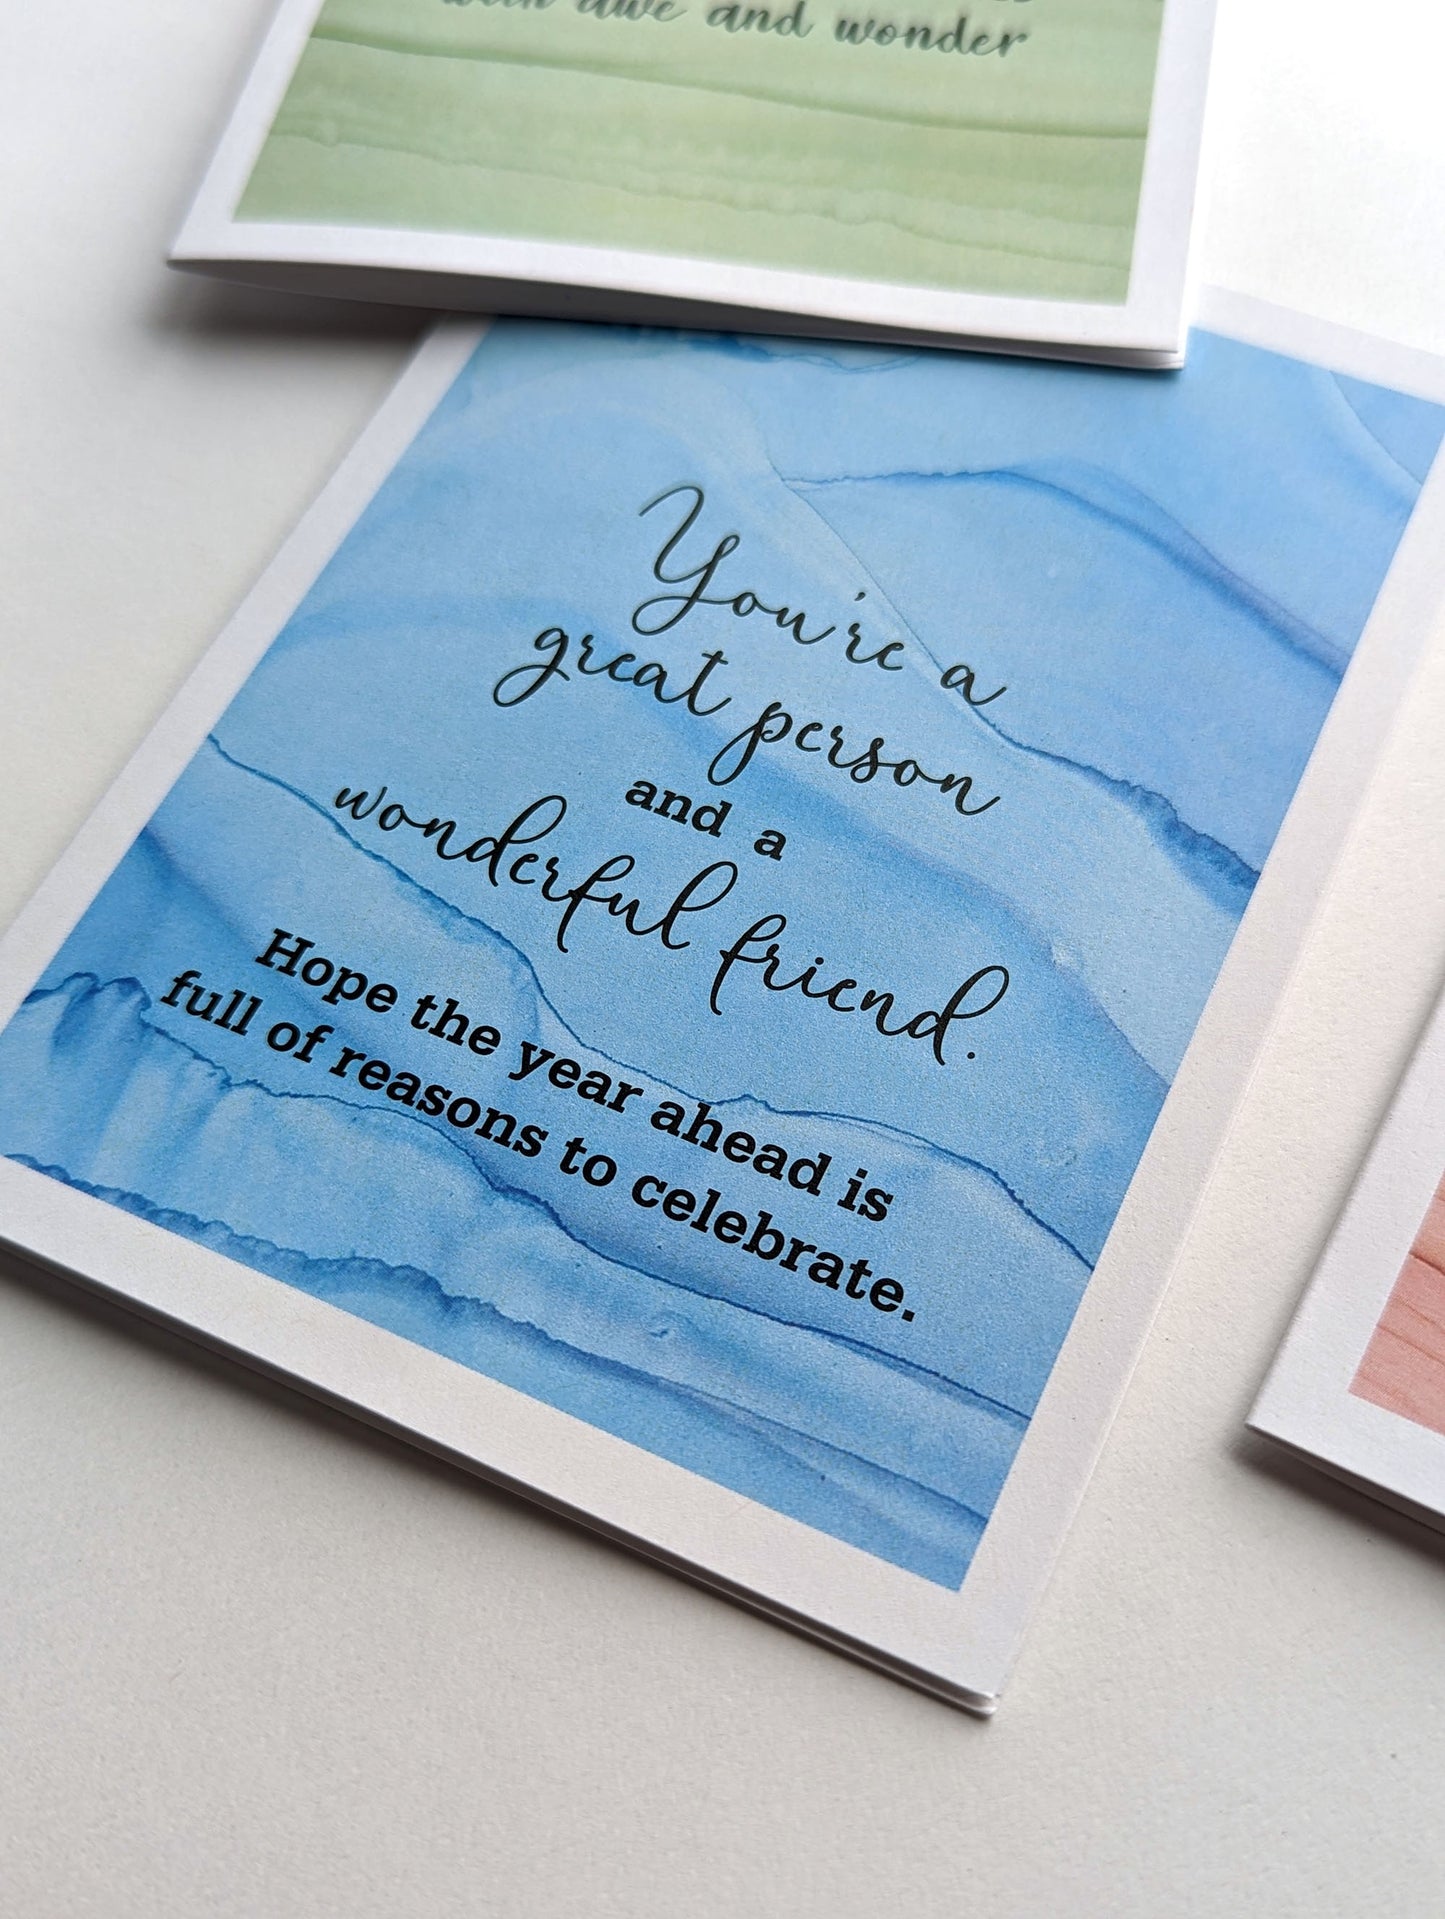 with awe and wonder
You're a
great person
and a
wonderful friend.
Hope the year ahead is
full of reasons to celebrate.